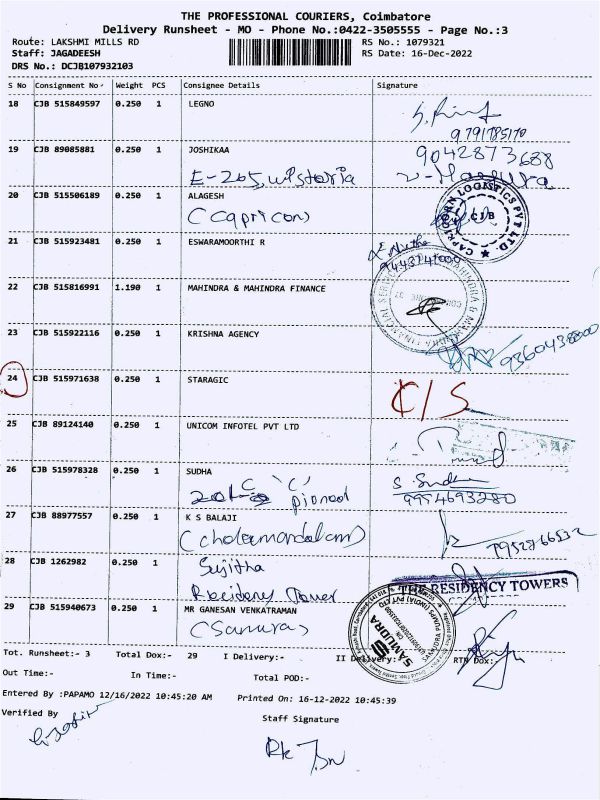 THE PROFESSIONAL COURIERS, Coimbatore
Delivery Runsheet - MO - Phone No.:0422-3505555 - Page No.:3
Route: LAKSHMI MILLS RD RS No.: 1079321
Staff: JAGADEESH RS Date: 16-Dec-2022
DRS No.: DCJB107932103
S No Consignment No Weight PCS Consignee Details Signature
18 CJB 515849597 0.250 1 LEGNO
9791785170
19 CJB 89085881 0.250 1 JOSHIKAA 9042873688
E-265, wistoria
20 CJB 515506189 0.250 1 ALAGESH
(Capricon)
CAPRICORN LOGISTICS PVT LTD. CJB
21 CJB 515923481 0.250 1 ESWARAMOORTHI R
22 CJB 515816991 1.190 1 MAHINDRA & MAHINDRA FINANCE
23 CJB 515922116 0.250 1 KRISHNA AGENCY
9360438000
24 CJB 515971638 0.250 1 STARAGIC C/S
25 CJB 89124140 0.250 1 UNICOM INFOTEL PVT LTD
26 CJB 515978328 0.250 1 SUDHA
9994693280
27 CJB 88977557 0.250 1 K S BALAJI
(cholamandalam)
28 CJB 1262982 0.250 1 Sujitha
Recidency Tower
THE RESIDENCY TOWERS
29 CJB 515940673 0.250 1 MR GANESAN VENKATRAMAN
(Samura)
SAMUDRA
Tot. Runsheet:- 3 Total Dox:- 29 I Delivery:- II Delivery:- RTN Dox:-
Out Time:- In Time:- Total POD:-
Entered By :PAPAMO 12/16/2022 10:45:20 AM Printed On: 16-12-2022 10:45:39
Verified By Staff Signature